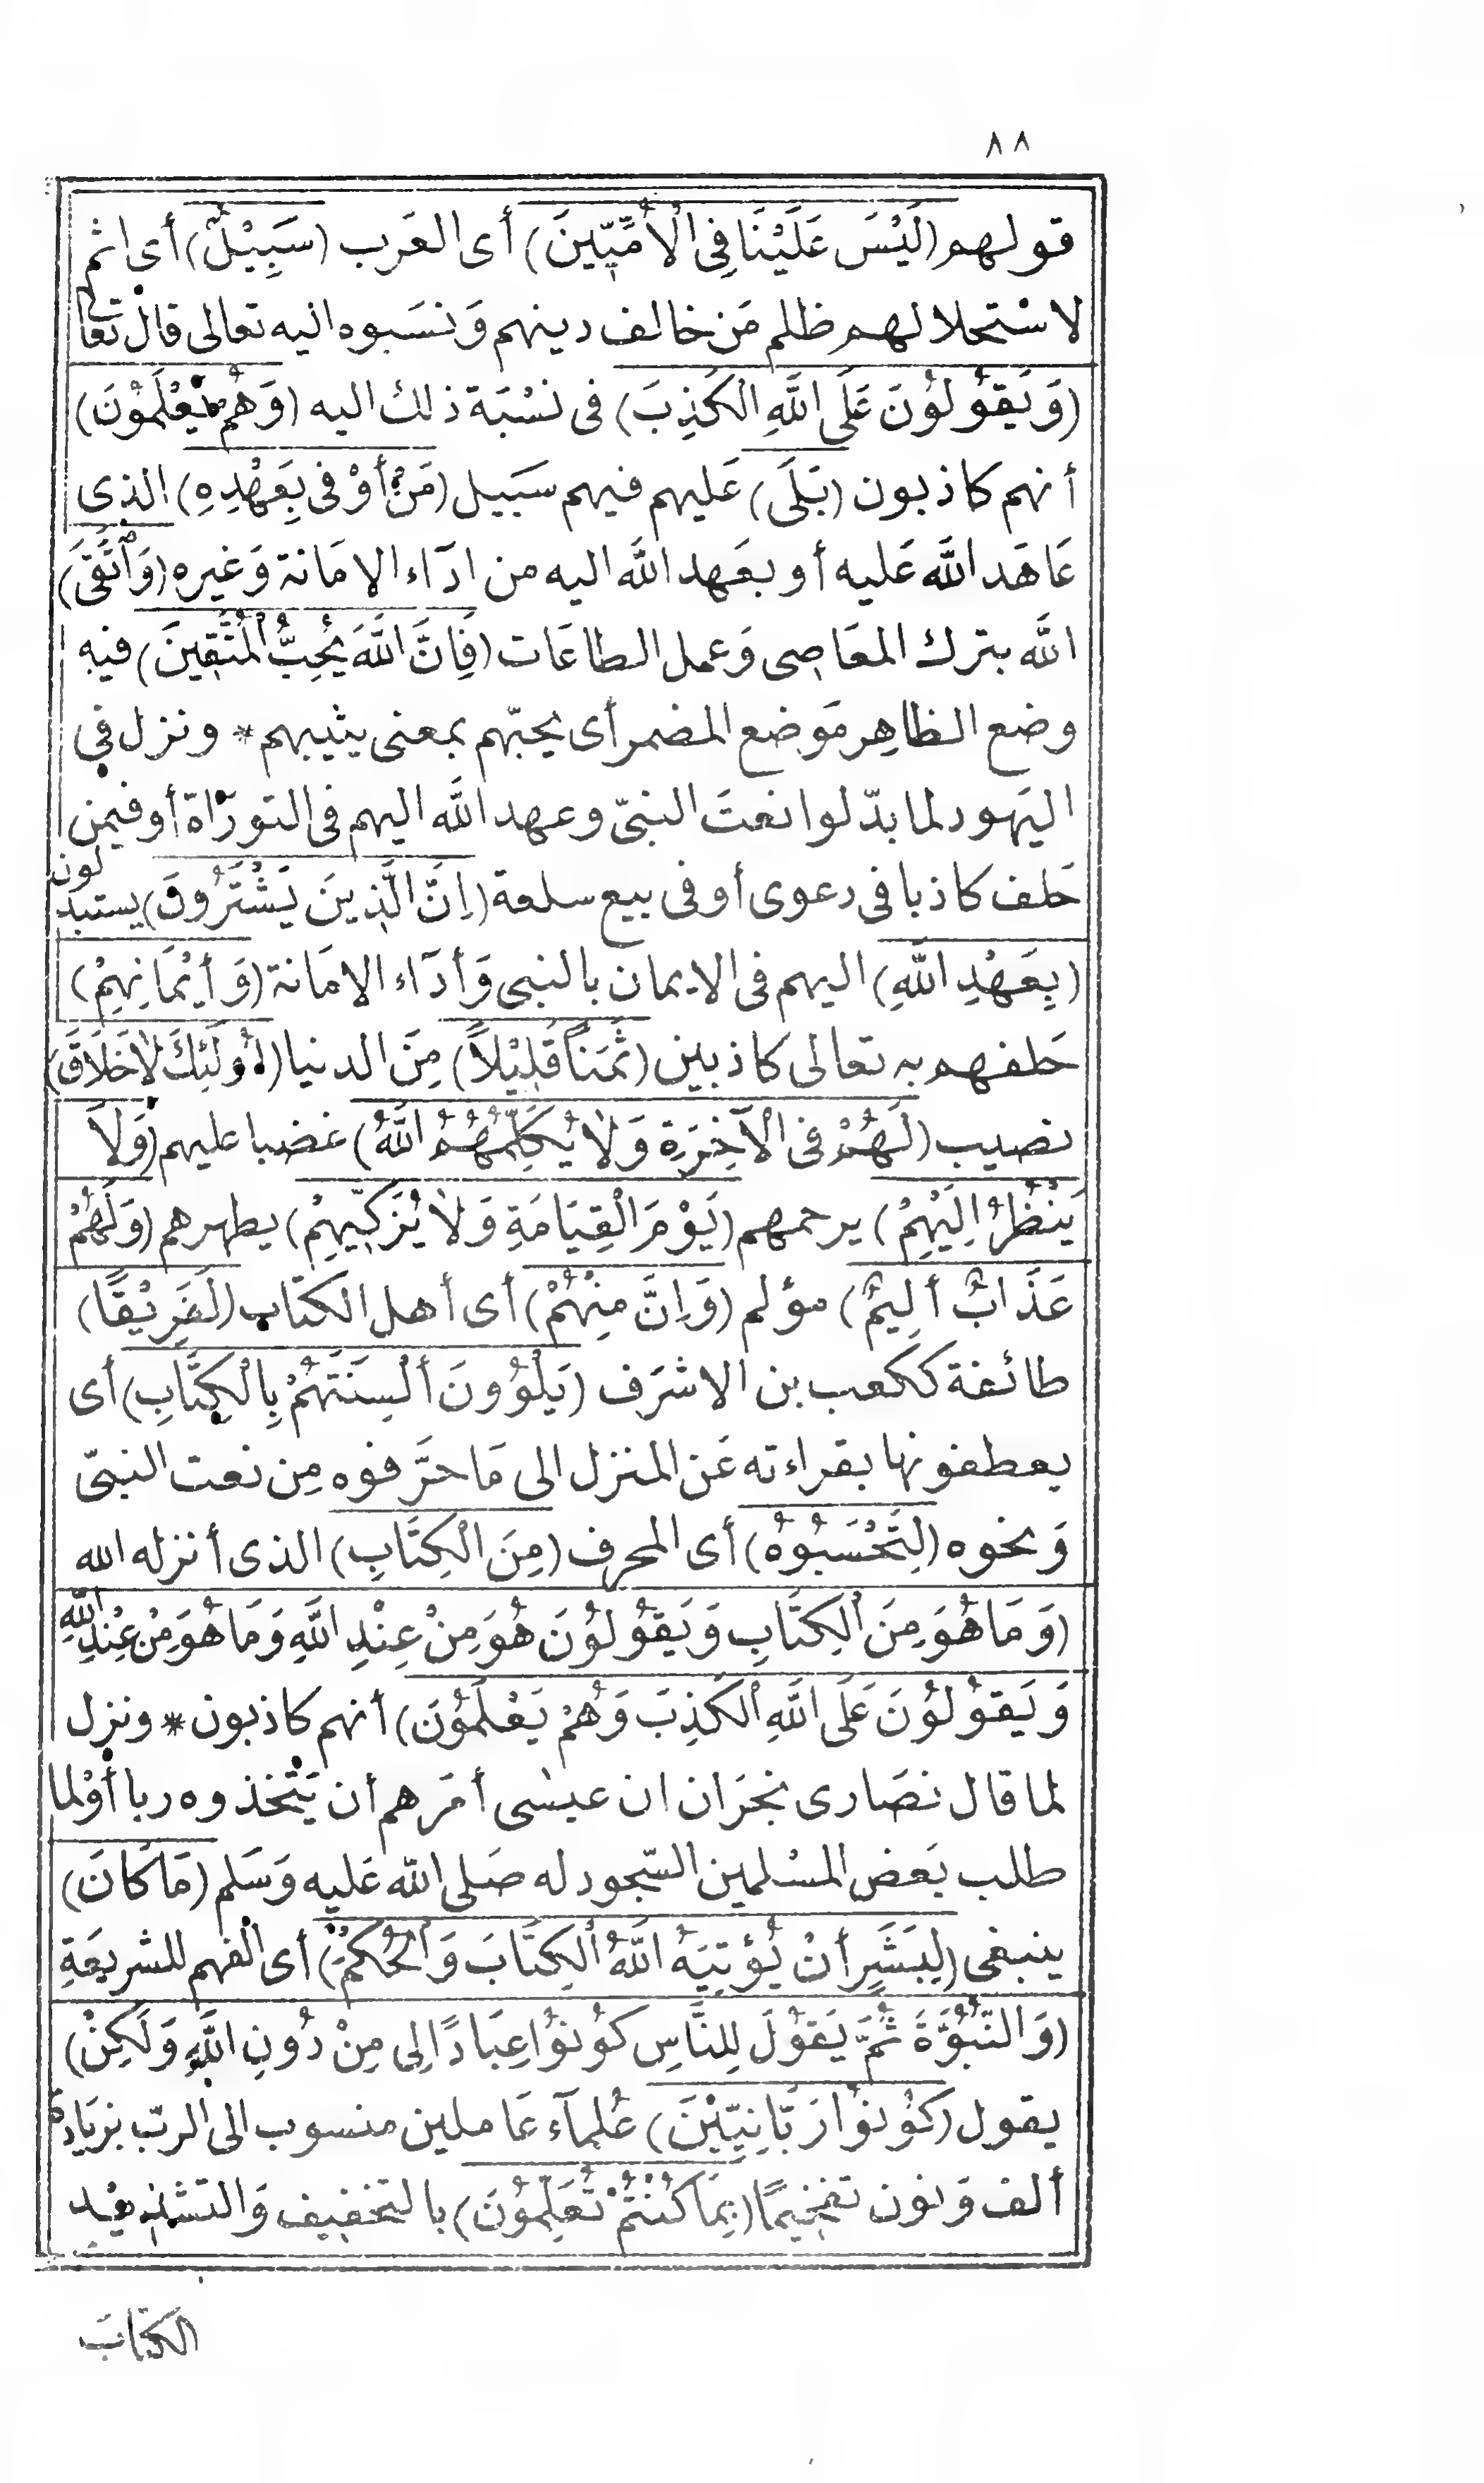 ٨٨
قولهم (لَيْسَ عَلَيْنَا فِى الْأُمِّيِّينَ) أى العَرب (سَبِيْلٌ) أى اثم
لاستحلالهم ظلم مَن خالف دينهم وَنسَبوه اليه تعالى قال تعالى
(وَيَقُولُوْنَ عَلَى اللَّهِ الْكَذِبَ) فى نسْبَة ذلك اليه (وَهُمْ يَعْلَمُوْنَ)
أنهم كاذبون (بَلَى) عَليهم فيهم سَبيل (مَنْ أَوْفى بِعَهْدِهِ) الذى
عَاهَد اللَّه عَليه أو بعَهد اللَّه اليه من ادَآء الامَانة وَغيره (وَاتَّقَى)
اللَّه بترك المعَاصى وَعمل الطاعَات (فَاِنَّ اللَّهَ يُحِبُّ الْمُتَّقِينَ) فيه
وضع الظاهِر مَوضع المضمر أى يحبّهم بمعنى يثيبهم * ونزل فى
اليَهود لما بدّلوا نعتَ النبىّ وعهد اللَّه اليهم فى التورَاة أو فيمن
حَلف كاذبا فى دعوى أو فى بيع سلعة (اِنَّ الَّذِينَ يَشْتَرُونَ) يستبدلون
(بِعَهْدِ اللَّهِ) اليهم فى الايمان بالنبى وَأدَآء الامَانة (وَأَيْمَانِهِمْ)
حَلفهم به تعالى كاذبين (ثَمَنًا قَلِيْلاً) مِنَ الدنيا (أُولَئِكَ لَاخَلَاقَ)
نصيب (لَهُمْ فى الْآخِرَةِ وَلَا يُكَلِّمُهُمُ اللَّهُ) غضبا عليهم (وَلَا
يَنْظُرُ اِلَيْهِمْ) يرحمهم (يَوْمَ الْقِيَامَةِ وَلَا يُزَكِّيهِمْ) يطهرهم (وَلَهُمْ
عَذَابٌ أَلِيمٌ) مؤلم (وَاِنَّ مِنْهُمْ) أى أهل الكتَاب (لَفَرِيْقًا)
طائفة ككعب بن الاشرَف (يَلْوُونَ أَلْسِنَتَهُمْ بِالْكِتَابِ) أى
يعطفونها بقراءته عَن المنزل الى مَا حرَّفوه مِن نعت النبىّ
وَنحوه (لِتَحْسَبُوْهُ) أى المحرف (مِنَ الْكِتَابِ) الذى أنزله الله
(وَمَا هُوَ مِنَ الْكِتَابِ وَيَقُوْلُوْنَ هُوَ مِنْ عِنْدِ اللَّهِ وَمَا هُوَ مِنْ عِنْدِ اللَّهِ
وَيَقُوْلُوْنَ عَلَى اللَّهِ الْكَذِبَ وَهُمْ يَعْلَمُوْنَ) أنهم كاذبون * ونزل
لما قال نصَارى نجرَان ان عيسٰى أمَرهم أن يَتّخذوه ربا أوْ لما
طلب بَعض المسْلمين السّجود له صَلى اللّه عَليه وَسَلم (مَا كَانَ)
ينبغى (لِبَشَرٍ أَنْ يُؤْتِيَهُ اللَّهُ الْكِتَابَ وَالْحُكْمَ) أى الفهم للشريعَةِ
(وَالنُّبُوَّةَ ثُمَّ يَقُوْلَ لِلنَّاسِ كُوْنُوْا عِبَادًا لِى مِنْ دُوْنِ اللَّهِ وَلَكِنْ)
يقول (كُوْنُوْا رَبَّانِيِّيْنَ) عُلمآء عَاملين منسوب الى الربّ بزيَادة
ألف وَنون تفخيمًا (بِمَا كُنْتُمْ تُعَلِّمُوْنَ) بالتخفيف وَالتشديد
الكتابَ